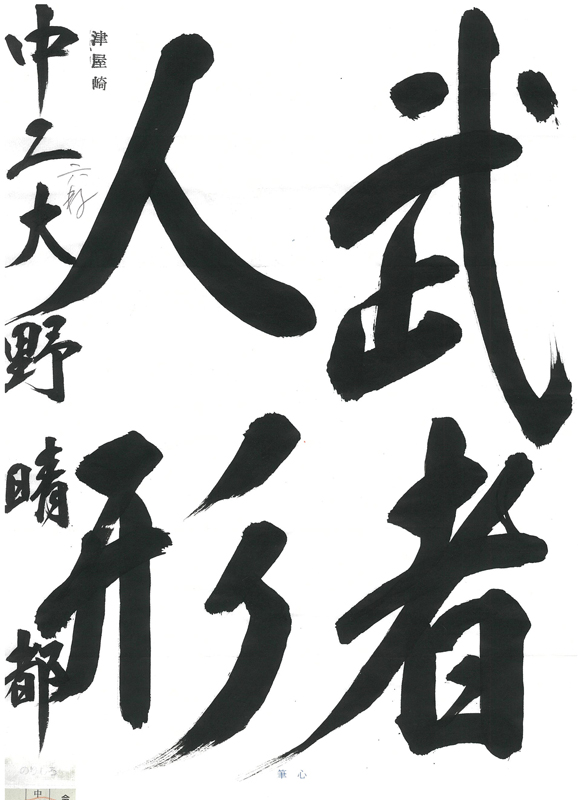 武者
人形
津屋崎
中二大野晴都
心筆
中